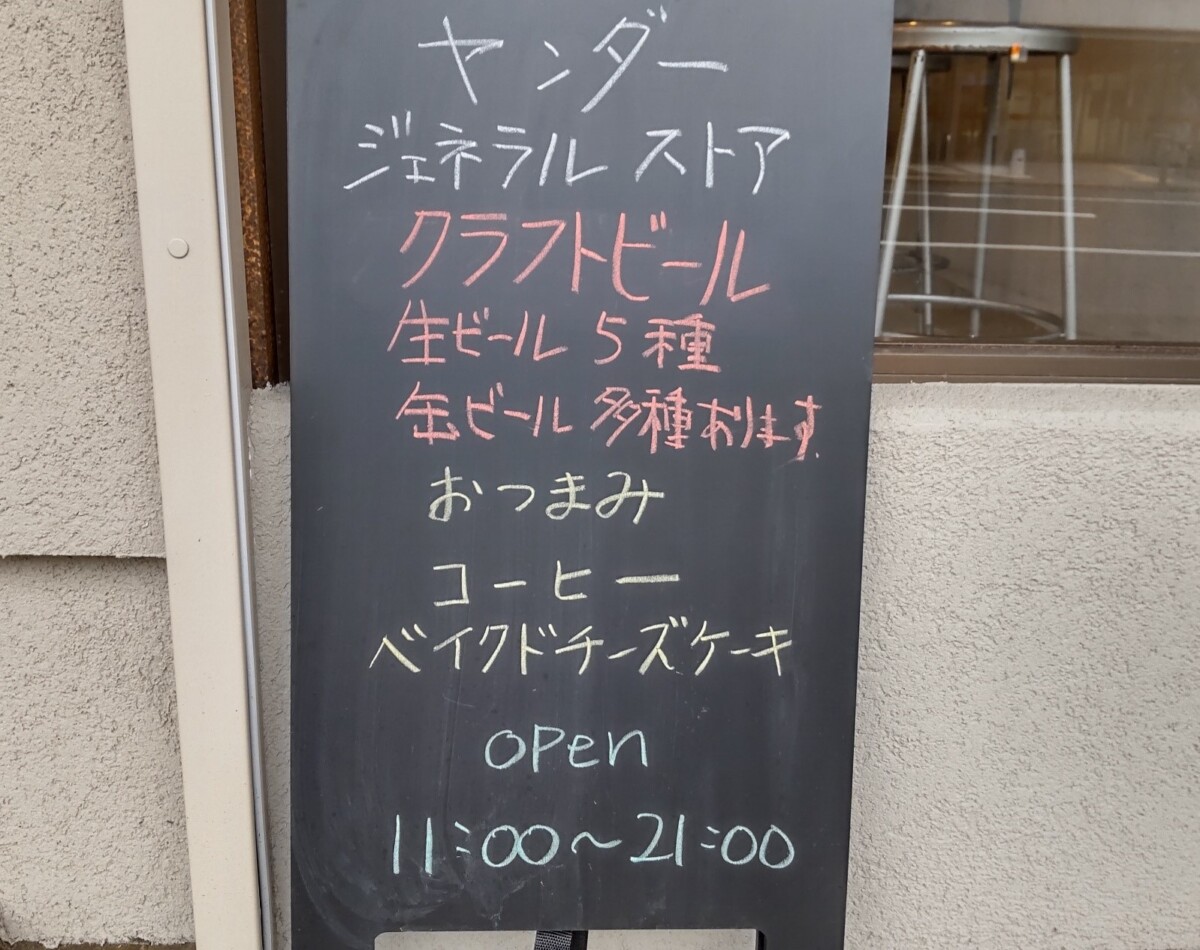 ヤンダー
ジェネラル ストア
クラフトビール
生ビール 5種
缶ビール 多種おります
おつまみ
コーヒー
ベイクドチーズケーキ
open
11:00〜21:00